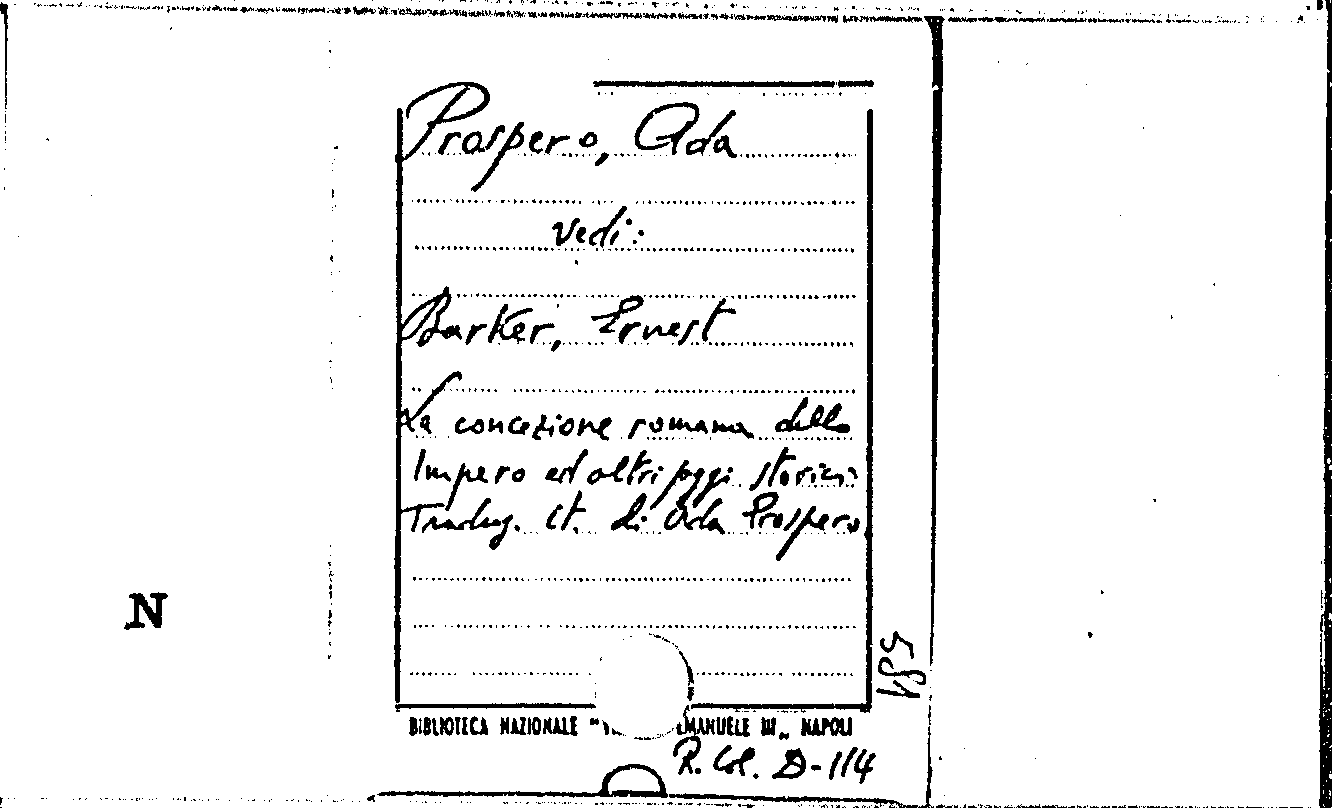 Prospero, Ada
vedi:
Barker, Ernest
La concezione romana dello
Impero ed altri saggi storici.
Traduz. it. di Ada Prospero
N
584
BIBLIOTECA NAZIONALE "VI EMANUELE III„ NAPOLI
R. Col. D-114